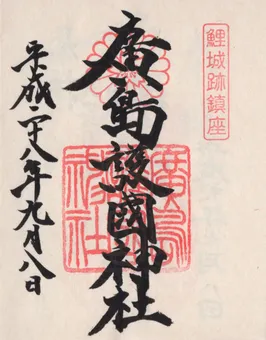 鯉城跡鎮座
廣島護國神社
廣島
護國
神社
平成二十八年九月八日